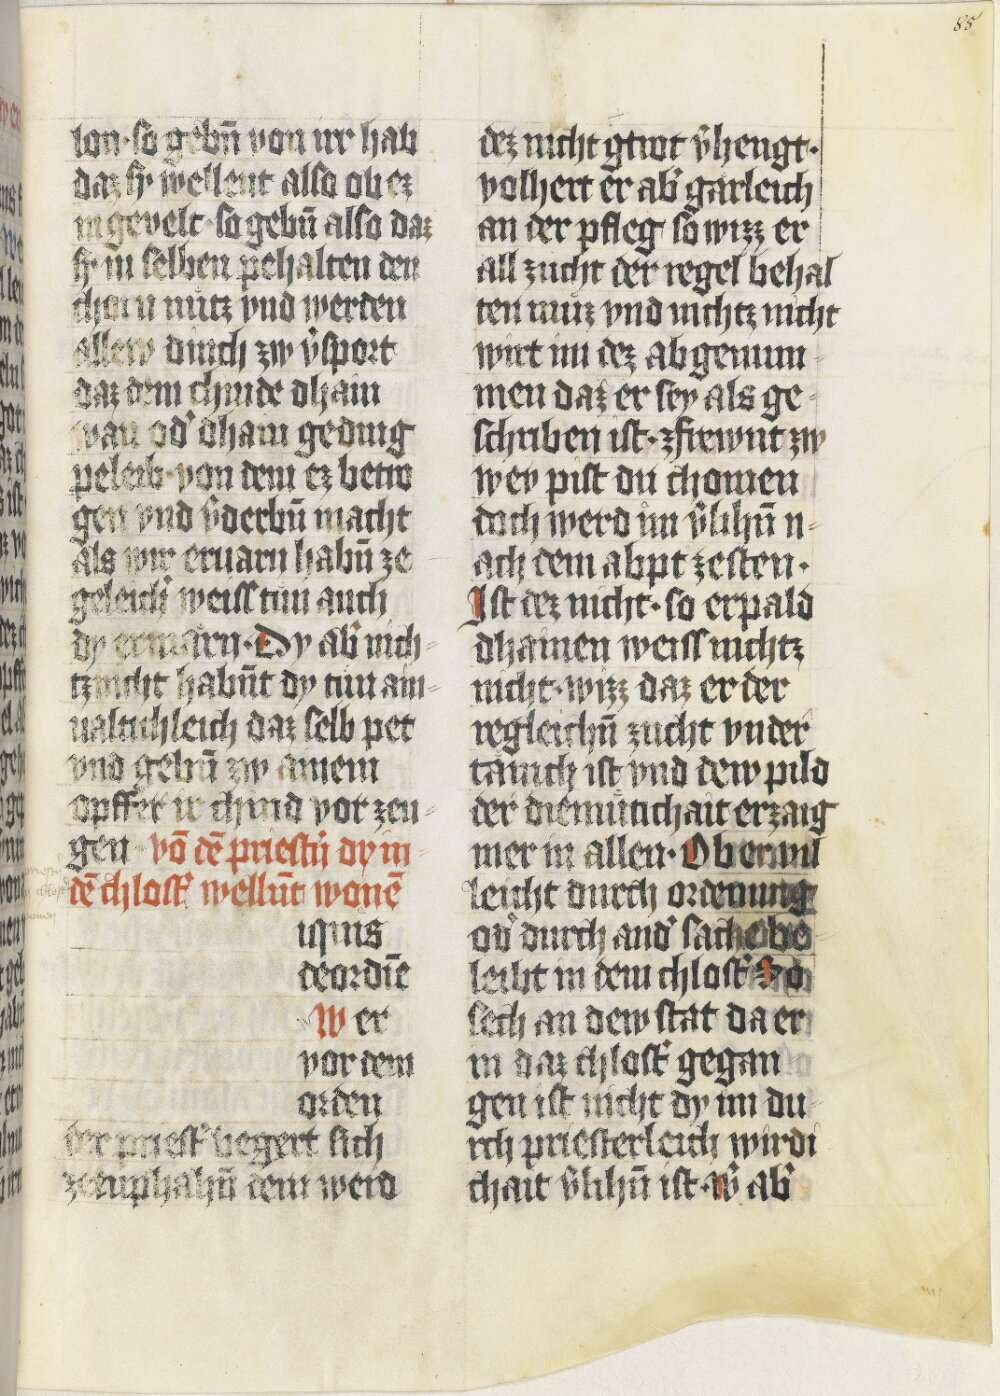 85
lon· so gebn̄ von irr hab
daz sy wellent also ob ez
in gevelt· so gebn̄ also daz
sy in selben pehalten den
charn nutz vnd werden
allew dinch zw v̉sport
daz dem chinde dhain
wan od̉ dham geding
peleib· von dem ez betro
gen vnd v̉derbn̄ macht
als wir eruarn habn̄ ze
geleich̉ weiss tun auch
dy ermarn· Dy ab̉ nich-
tz nicht habn̄t dy tun ain-
ualtichleich daz selb pet
vnd gebn̄ zw ainem
opffer ir chind vor zeu-
gen vō dē priestn̄ dy in
dē chlost̉ welln̄t wonē
iquis
deordīe
Wer
vor dem
orden
der priest̉ begert sich
ze emphahn̄ dem werd
dez nicht gtrot v̉hengt·
volhert er ab̉ garleich
an der pfleg so wizz er
all zucht der regel behal
ten muz vnd nichtz nicht
wirt im dez ab genum-
men daz er sey als ge-
schriben ist· frewnt zw
wev pist du chomen
doch werd im v̉lihn̄ n-
ach dem abpt zesten·
Ist dez nicht· so erpald
dhainen weiss nichtz
nicht· wizz daz er der
regleichn̄ zucht vnder
tanich ist vnd dew pild
der diemutichait erzaig
mer in allen· Ob er vil
leicht durch ordenung
od̉ durch and̉ sach
leibt in dem chlost̉ So
sech an dew stat da er
in daz chlost̉ gegan
gen ist nicht dy im du-
rch priesterleich wirdi
chait v̉lihn̄ ist· ab̉